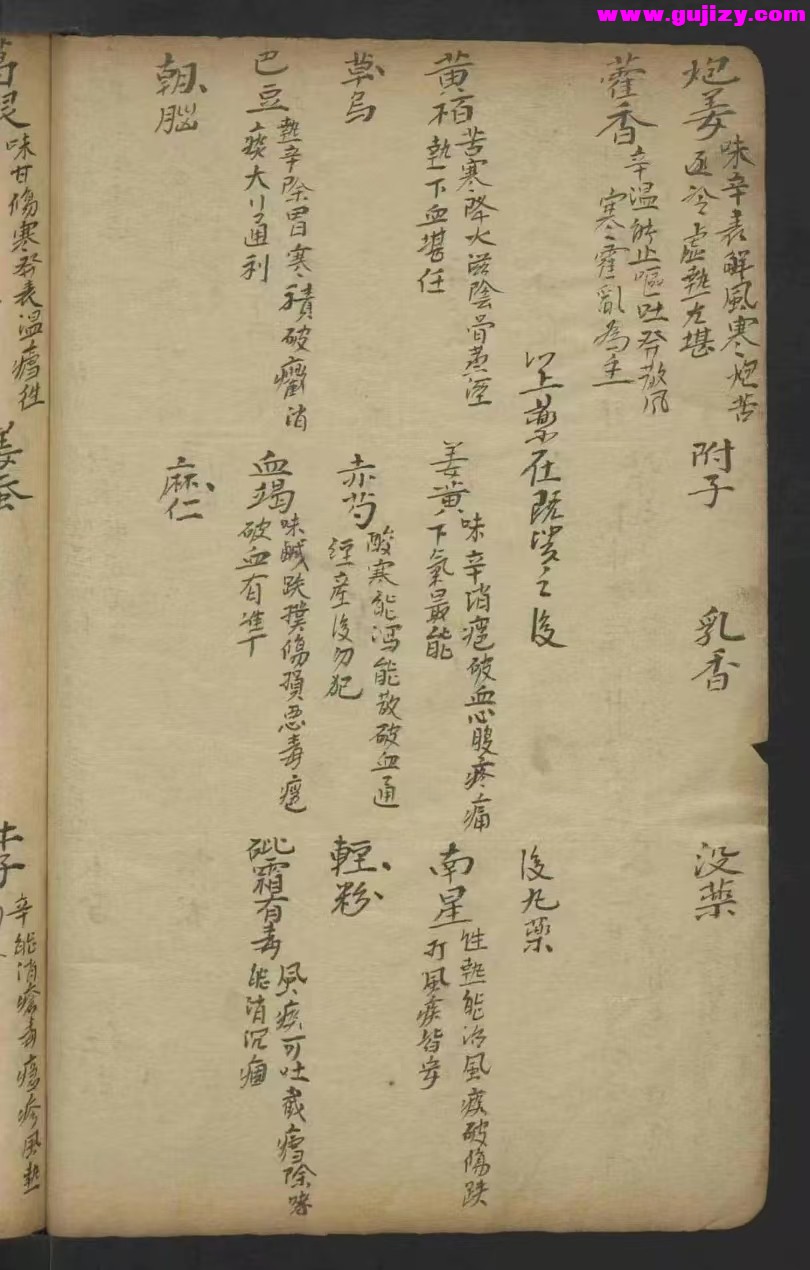 www.gujizy.com
炮姜 味辛表解風寒炮苦
逐冷虛熱尤堪
附子
乳香
没藥
藿香 辛温能止嘔吐發散風
寒霍亂為主
以上藥在既潰之後
後九藥
黄栢 苦寒降火滋陰骨蒸溼
熱下血堪任
姜黄 味辛消癰破血心腹疼痛
下氣最能
南星 性熱能治風痰破傷跌
打風痰皆安
草烏
赤芍 酸寒能瀉能散破血通
經産後勿犯
輕粉
巴豆 熱辛除胃寒積破癥消
痰大通利
血竭 味鹹跌撲傷損惡毒瘡
破血有準
砒霜有毒 風痰可吐截瘧除哮
能消沉痼
朝腦
麻仁
味甘傷寒發表温瘧往
姜蚕
牛子 辛能消瘡毒癮疹風熱